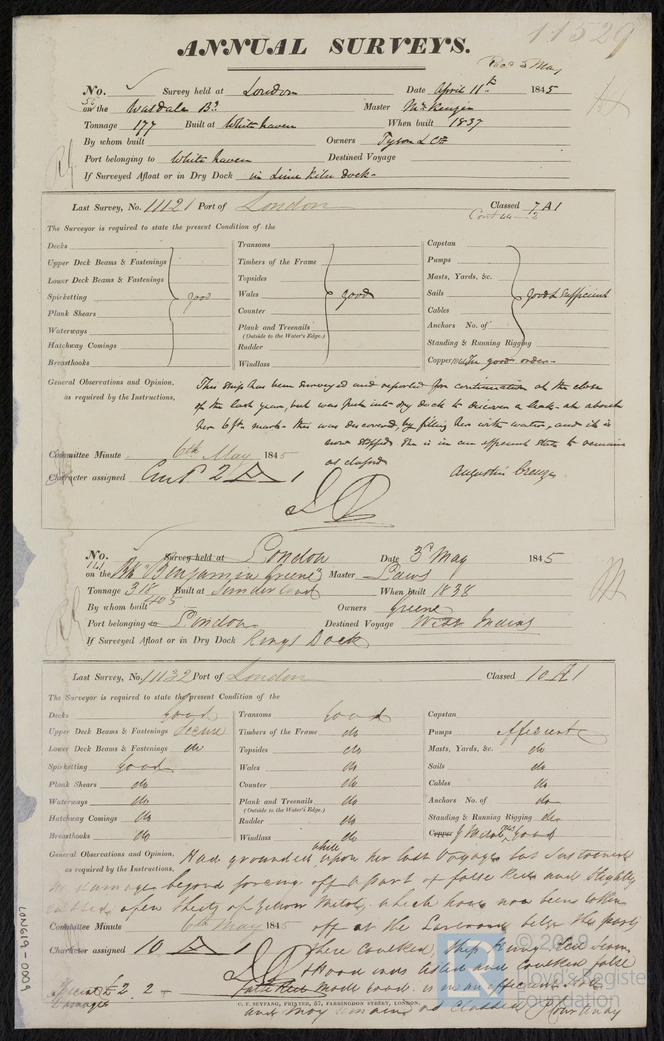 11529
ANNUAL SURVEYS.
Recd 5 May
No. Survey held at London Date April 11th 1845
56 on the Wasdale Bn. Master McKenzie
Tonnage 177 Built at Whitehaven When built 1837
By whom built Owners Tyson & Co
Port belonging to Whitehaven Destined Voyage
If Surveyed Afloat or in Dry Dock in Lime Kiln Dock
Last Survey, No. 11121 Port of London Classed 7 A 1
Cont 44 - 2
The Surveyor is required to state the present Condition of the
Decks Transoms Capstan
Upper Deck Beams & Fastenings Timbers of the Frame Pumps
Lower Deck Beams & Fastenings Topsides Masts, Yards, &c.
Spirketting good Wales good Sails good & sufficient
Plank Shears Counter Cables
Waterways Plank and Treenails Anchors No. of
(Outside to the Water's Edge.)
Hatchway Comings Rudder Standing & Running Rigging
Breasthooks Windlass Copper in good order
General Observations and Opinion, This ship has been surveyed and reported for continuation at the close
as required by the Instructions, of the last year, but was put into dry dock to discover a leak at about
her 6 ft. mark this was discovered, by filling her with water, and it is
now stopped. She is in an efficient state to remain
as classed
Committee Minute 6th May 1845
Character assigned Cont 2 A 1
Augustin Creuze
No. Survey held at London Date 3d May 1845
141 on the Bk "Benjamin Greene" Master Paws
Tonnage 318 Built at Sunderland When built 1838
405
By whom built Owners Greene
Port belonging to London Destined Voyage West Indies
If Surveyed Afloat or in Dry Dock Kings Dock
Last Survey, No. 11132 Port of London Classed 10 A 1
The Surveyor is required to state the present Condition of the
Decks Good Transoms Good Capstan
Upper Deck Beams & Fastenings Secure Timbers of the Frame do Pumps Efficient
Lower Deck Beams & Fastenings do Topsides do Masts, Yards, &c. do
Spirketting Good Wales do Sails do
Plank Shears do Counter do Cables do
Waterways do Plank and Treenails do Anchors No. of do
(Outside to the Water's Edge.)
Hatchway Comings do Rudder do Standing & Running Rigging do
Breasthooks do Windlass do Copper Y Metal good
General Observations and Opinion, Had grounded while upon her last Voyage but sustained
as required by the Instructions, no damage beyond forcing off a part of false Keel and slightly
sheets of Yellow Metal, which have now been taken
Committee Minute 6th May 1845 off at the Larboard bilge the part
Character assigned 10 A 1 there caulked,
and caulked false
Keel made good. is in an efficient state
Special £2 2 -
Damages
C. F. SEYFANG, PRINTER, 57, FARRINGDON STREET, LONDON.
and may remain as Classed. P Courtenay
LON619-0009
© 2019
Lloyd's Register
Foundation